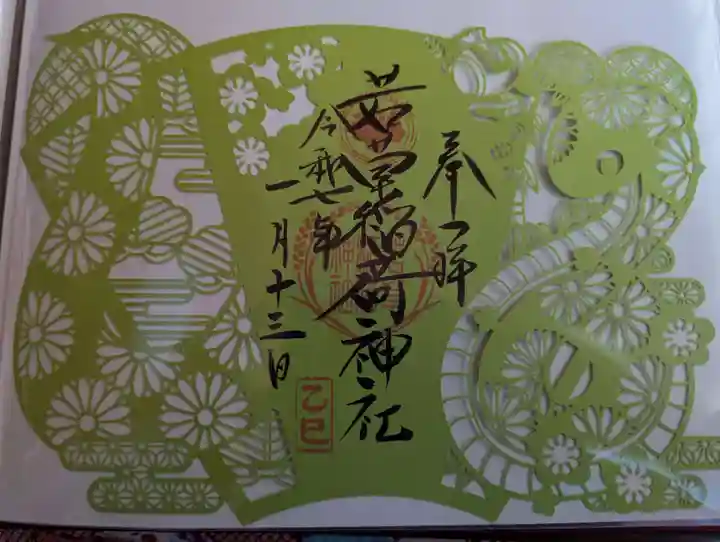 奉拝
若草稲荷神社
令和七年
一月十三日
乙巳